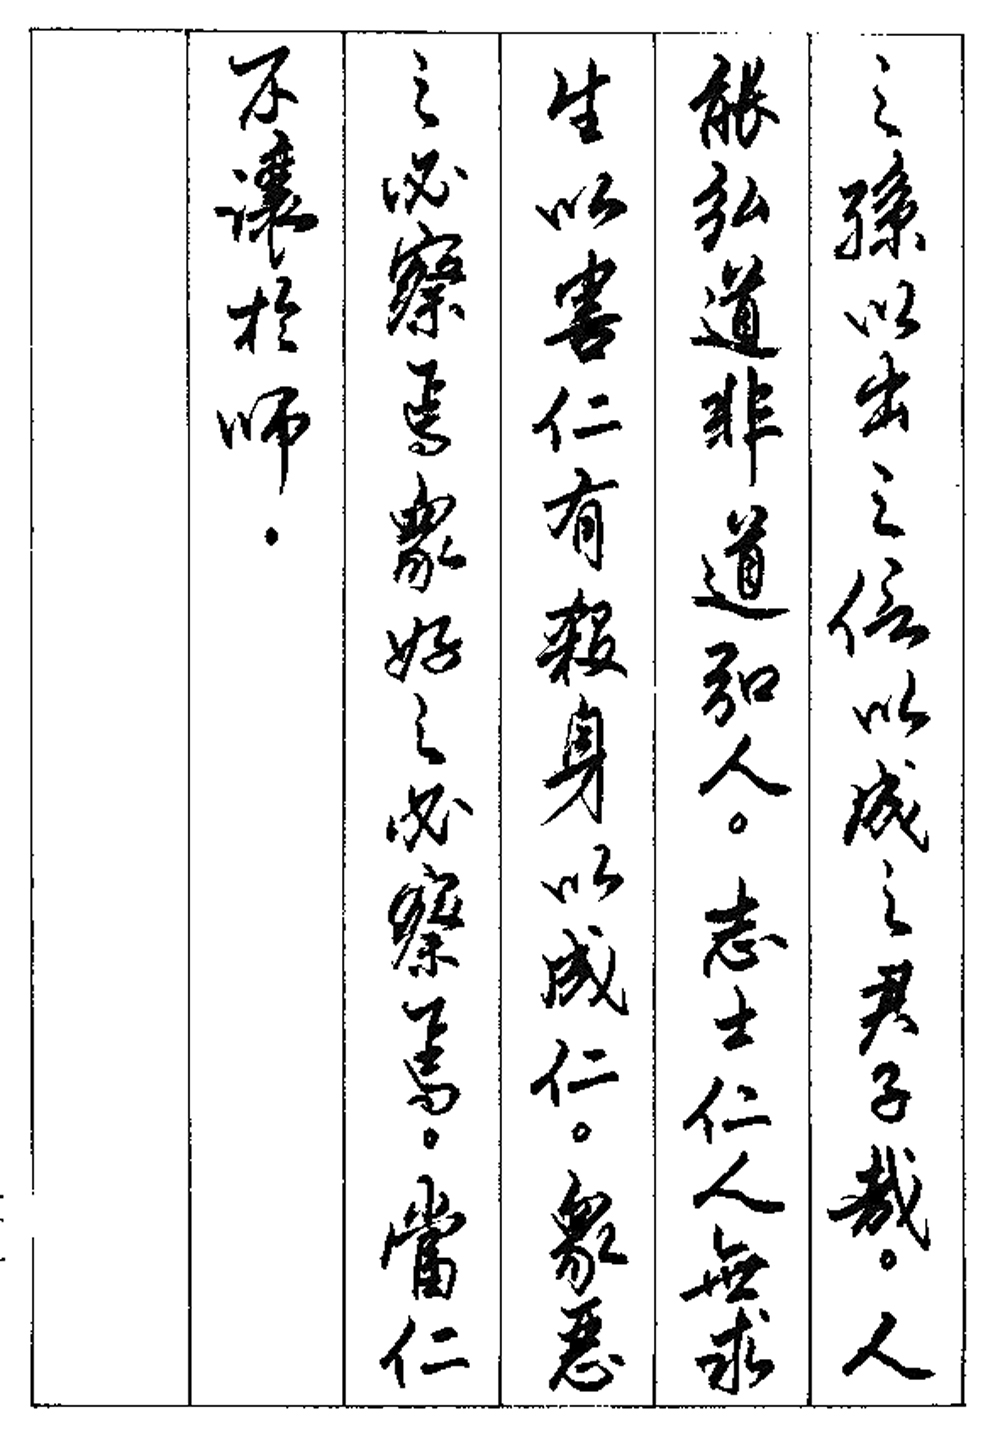 之孫以出之信以成之君子哉。人
能弘道非道弘人。志士仁人無求
生以害仁有殺身以成仁。衆惡
之必察焉衆好之必察焉。當仁
不讓於師。